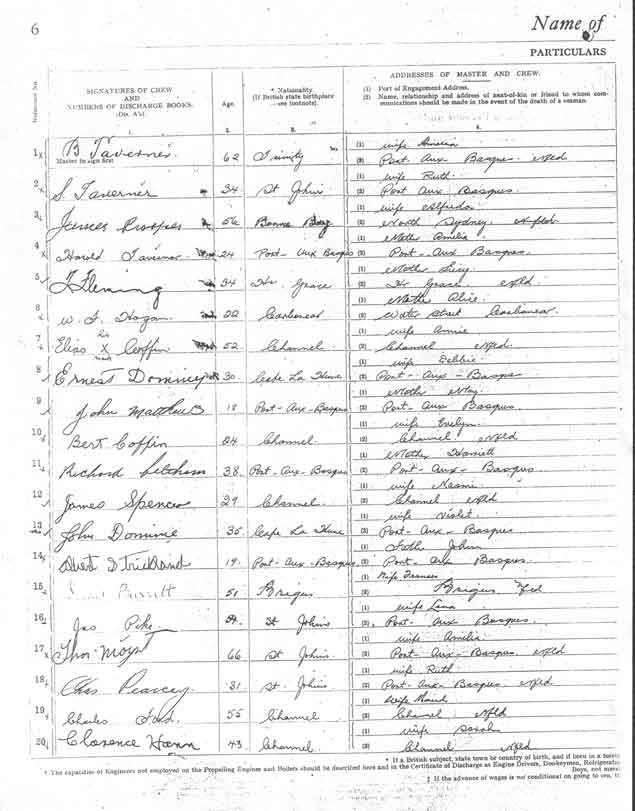 6
Name of
PARTICULARS
Reference No.
SIGNATURES OF CREW
AND
NUMBERS OF DISCHARGE BOOKS.
(Dis. A's).
1.
Age.
2.
* Nationality
(If British state birthplace
—see footnote).
3.
ADDRESSES OF MASTER AND CREW.
(1) Port of Engagement Address.
(2) Name, relationship and address of next-of-kin or friend to whom com-
munications should be made in the event of the death of a seaman.
4.
1 x B Taverner 62 Trinity (1) wife Amelia
Master to sign first (2) Port Aux Basques Nfld
2 x S. Taverner 34 St Johns (1) wife Ruth
(2) Port Aux Basques
3 James Prosper 56 Bonne Bay (1) wife Alfreda
(2) North Sydney Nfld
4 x Harold Taverner 24 Port-Aux Basques (1) Mother Amelia
(2) Port-Aux Basques
5 Fleming 34 Hr Grace (1) Mother Lucy
(2) Hr Grace Nfld
6 W. F. Hogan 22 Carbonear (1) Mother Alice
(2) Water Street Carbonear
7 Elias x Coffin 52 Channel (1) wife Annie
his mark (2) Channel Nfld
8 Ernest Dominey 30 Cape La Hune (1) wife Debbie
(2) Port-Aux-Basques
9 John Matthews 18 Port-Aux-Basques (1) Mother May
(2) Port-Aux Basques
10 Bert Coffin 24 Channel (1) wife Evelyn
(2) Channel Nfld
11 Richard 38 Port-Aux-Basques (1) Mother Harriett
(2) Port-Aux-Basques
12 James Spencer 29 Channel (1) wife Naomi
(2) Channel Nfld
13 John Dominie 35 Cape La Hune (1) wife Violet
(2) Port-Aux-Basques
14 Strickland 19 Port-Aux-Basques (1) Father John
(2) Port-Aux Basques
15 51 Brigus (1) Wife Frances
(2) Brigus Nfld
16 Jas Pike St Johns (1) wife Lena
(2) Port-Aux Basques
17 x Thos Moyst 66 St Johns (1) wife Amelia
(2) Port-Aux-Basques Nfld
18 Chas Pearcey 31 St Johns (1) wife Ruth
(2) Port-Aux-Basques Nfld
19 Charles Ford 55 Channel (1) Wife Maud
(2) Channel Nfld
20 Clarence Hann 43 Channel (1) wife Sarah
(2) Channel Nfld
* If a British subject, state town or country of birth, and if born in a
† The capacities of Engineers not employed on the Propelling Engines and Boilers should be described here and in the Certificate of Discharge as Engine Drivers, Donkeymen, Refrigerating
‡ If the advance of wages is not conditional on going to sea,